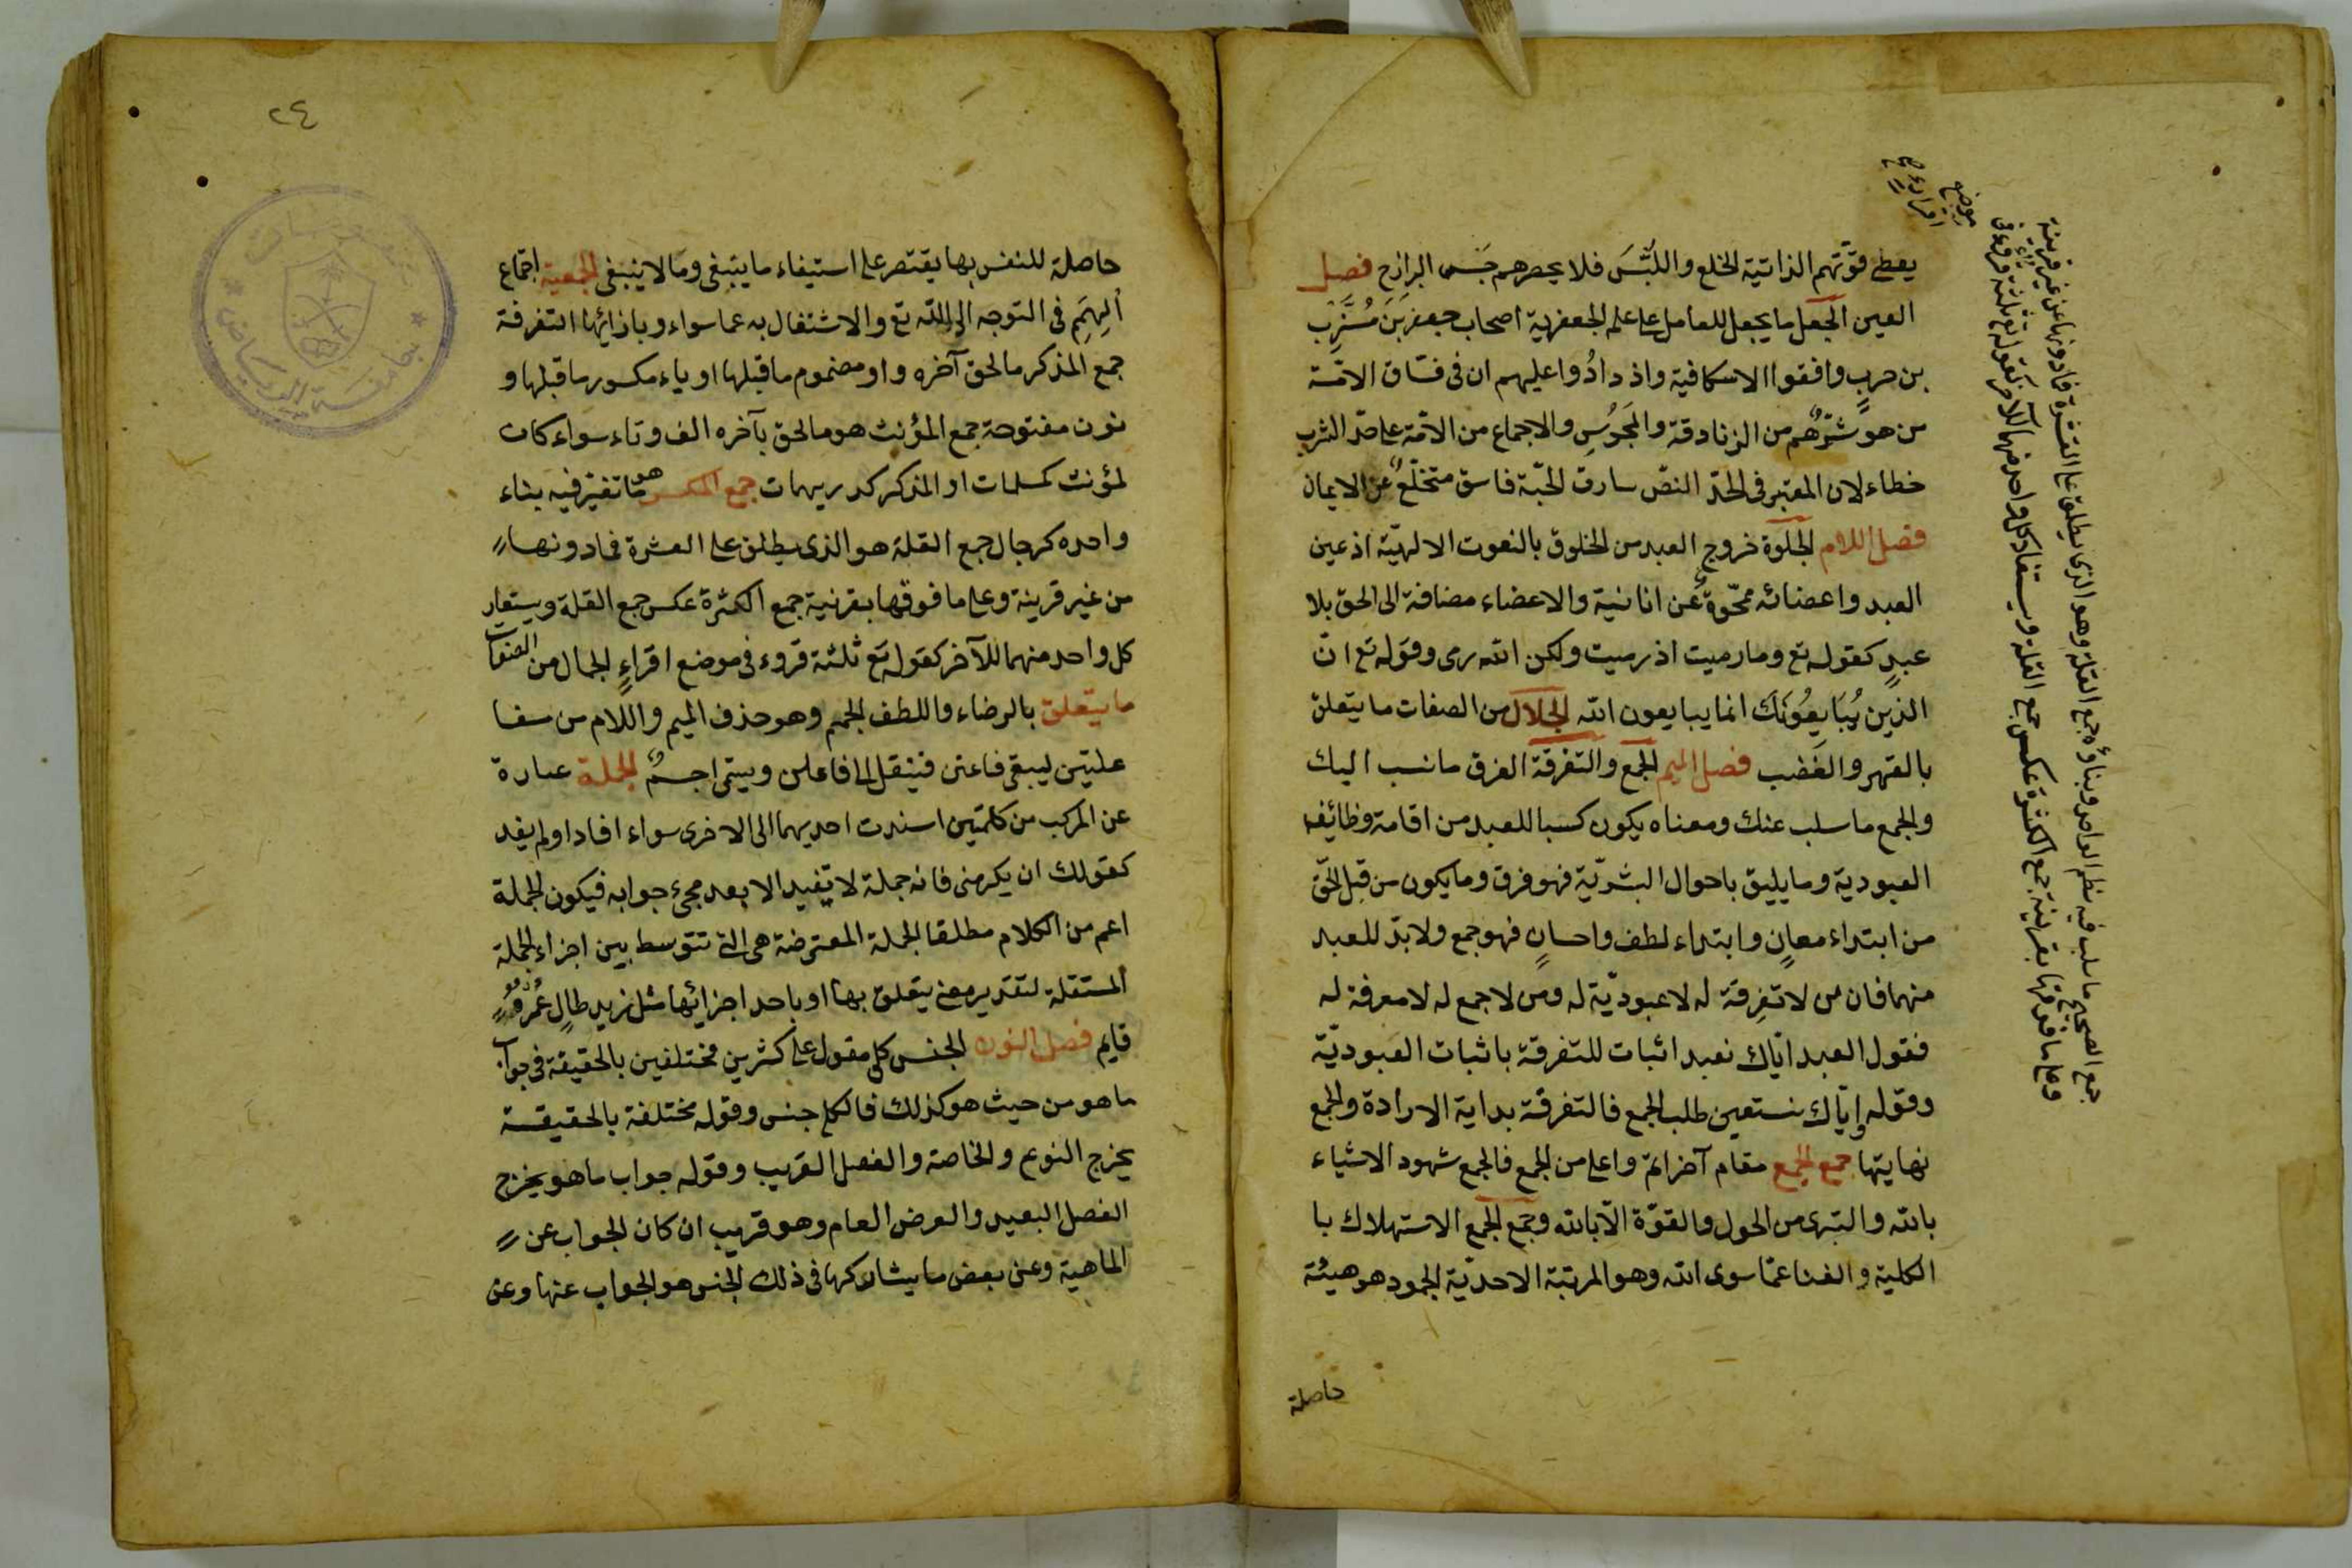 يعطى قوّتهم الذاتية الخلع واللّبْسَ فلا يحصرهم حَبس البرازخ فصل
العين الجعل ما يجعل للعامل على عمله الجعفرية اصحاب جعفر بن مُبَشِّرِ
بن حربٍ وافقوا الاسكافية وازدادُوا عليهم ان فى فسّاق الامّة
من هو شرّهُم من الزنادقة والمجَوُسِ والاجماع من الامّة على حدّ الشرب
خطاء لان المعتبر فى الحدّ النصّ سارق الحبّة فاسق منخلعٌ عن الايمان
فصل اللام الجلوة خروج العبد من الخلوة بالنعوت الالهيّة اذ عين
العبد واعضائه ممحّوةٌ عن انانية والاعضاء مضافة الى الحق بلا
عبدٍ كقوله تع وما رميت اذ رميت ولكن الله رمى وقوله تع انّ
الذين يُبَايِعُونَكَ انما يبايعون الله الجلال من الصفات ما يتعلق
بالقهر والغَضب فصل الميم الجمع والتفرقة الفرق ما نسب اليك
والجمع ما سلب عنك ومعناه يكون كسبا للعبد من اقامة وظائف
العبودية وما يليق باحوال البشريّة فهو فرق وما يكون من قِبل الحَقّ
من ابتداء معانٍ وابتداء لطف واحسانٍ فهو جمع ولا بدّ للعبد
منهما فان من لا تفرِقة له لا عبوديّة له ومن لا جمع له لا معرفة له
فقول العبد ايّاك نعبد اثبات للتفرقة باثبات العبوديّة
وقوله إيّاك نستعين طلب الجمع فالتفرقة بداية الارادة والجمع
نهايتها جمع الجمع مقام آخر اتمّ واعلى من الجمع فالجمع شهود الاشياء
بالله والتبرى من الحول والقوّة الّا بالله وجمَع الجمع الاستهلاك با
الكلية والفنا عمّا سوى الله وهو المرتبة الاحديّة الجمود هو هيئة
حاصلة
جمع الصحيح ما سلب فيه نظم الواحد وبناؤه جمع القلة وهو الذى يطلق على العشرة فما دونها عن غير قرينة
وعلى ما فوقها بقرينة جمع الكثرة عكس جمع القلة ويستفاد كل واحد منهما للآخر كقوله تع ثلثة قروء فى
موضع
اقراءٍ صح
٢٤
حاصلة للنفس بها يقتصر على استيفاء ما ينبغى وما لا ينبغى الجمعية اجماع
الهِمَمِ فى التوجه الى الله تع والاشتغال به عما سواه وبازائها التفرقة
جمع المذكر ما لحق آخره واو مضموم ما قبلها او ياء مكسور ما قبلها و
نون مفتوحة جمع المؤنث هو ما لحق بآخره الف وتاء سواء كان
لمؤنث كمسلمات او المذكر كدريهمات جمع المكسر هو ما تغيّر فيه بناء
واحده كرجال جمع القلة هو الذى يطلق على العشرة فما دونها
من غير قرينة وعلى ما فوقها بقرنية جمع الكثرة عكس جمع القلة ويستعار
كل واحد منهما للآخر كقوله تع ثلثة قروء فى موضع اقراءٍ الجمال من الصفات
ما يتعلق بالرضاء واللطف الجمم وهو حذف الميم واللام من مفا
علتين ليبقى فاعتن فينقل الى فاعلن ويسمى اجمٌ الجملة عبارة
عن المركب من كلمتين اسندت احديهما الى الاخرى سواء افاد او لم يفد
كقولك ان يكرمنى فانه جملة لا تفيد الا بعد مجئ جوابه فيكون الجملة
اعم من الكلام مطلقا الجملة المعترضة هى التى تتوسط بين اجزاء الجملة
المستقلة لتقدير معنى يتعلق بها او باحد اجزائها مثل زيد طال عُمره
قايم فصل النون الجنس كلى مقول على كثرين مختلفين بالحقيقة فى جواب
ما هو من حيث هو كذلك فالكلى جنس وقوله مختلفة بالحقيقة
يخرج النوع والخاصة والفصل القريب وقوله جواب ما هو يخرج
الفصل البعيد والعرض العام وهو قريب ان كان الجواب عن
الماهية وعن بعض ما يشاركها فى ذلك الجنس هو الجواب عنها وعن